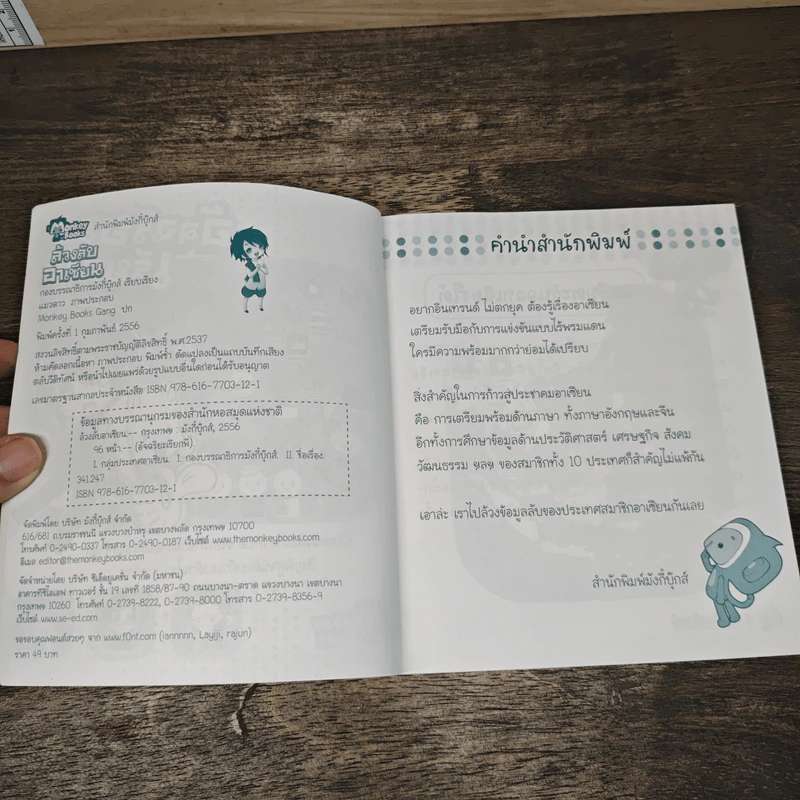 Monkey Books
สำนักพิมพ์มังกี้บุ๊กส์
ล้วงลับ
อาเซียน
กองบรรณาธิการมังกี้บุ๊กส์ เรียบเรียง
แมวดาว ภาพประกอบ
Monkey Books Gang ปก
พิมพ์ครั้งที่ 1 กุมภาพันธ์ 2556
สงวนลิขสิทธิ์ตามพระราชบัญญัติลิขสิทธิ์ พ.ศ.2537
ห้ามคัดลอกเนื้อหา ภาพประกอบ พิมพ์ซ้ำ ดัดแปลงเป็นแถบบันทึกเสียง
ตลับวีดิทัศน์ หรือนำไปเผยแพร่ด้วยรูปแบบอื่นใดก่อนได้รับอนุญาต
เลขมาตรฐานสากลประจำหนังสือ ISBN 978-616-7703-12-1
ข้อมูลทางบรรณานุกรมของสำนักหอสมุดแห่งชาติ
ล้วงลับอาเซียน.-- กรุงเทพฯ : มังกี้บุ๊กส์, 2556
96 หน้า.-- (อัจฉริยะเรียกพี่).
1. กลุ่มประเทศอาเซียน. I. กองบรรณาธิการมังกี้บุ๊กส์. II. ชื่อเรื่อง.
341.247
ISBN 978-616-7703-12-1
จัดพิมพ์โดย บริษัท มังกี้บุ๊กส์ จำกัด
616/681 ถ.บรมราชชนนี แขวงบางบำหรุ เขตบางพลัด กรุงเทพฯ 10700
โทรศัพท์ 0-2490-0337 โทรสาร 0-2490-0187 เว็บไซต์ www.themonkeybooks.com
อีเมล editor@themonkeybooks.com
จัดจำหน่ายโดย บริษัท ซีเอ็ดยูเคชั่น จำกัด (มหาชน)
อาคารทีซีไอเอฟ ทาวเวอร์ ชั้น 19 เลขที่ 1858/87-90 ถนนบางนา-ตราด แขวงบางนา เขตบางนา
กรุงเทพฯ 10260 โทรศัพท์ 0-2739-8222, 0-2739-8000 โทรสาร 0-2739-8356-9
เว็บไซต์ www.se-ed.com
ขอขอบคุณฟอนต์สวยๆ จาก www.f0nt.com (iannnnn, Layiji, rajun)
ราคา 49 บาท
คำนำสำนักพิมพ์
อยากอินเทรนด์ ไม่ตกยุค ต้องรู้เรื่องอาเซียน
เตรียมรับมือกับการแข่งขันแบบไร้พรมแดน
ใครมีความพร้อมมากกว่าย่อมได้เปรียบ
สิ่งสำคัญในการก้าวสู่ประชาคมอาเซียน
คือ การเตรียมพร้อมด้านภาษา ทั้งภาษาอังกฤษและจีน
อีกทั้งการศึกษาข้อมูลด้านประวัติศาสตร์ เศรษฐกิจ สังคม
วัฒนธรรม ฯลฯ ของสมาชิกทั้ง 10 ประเทศก็สำคัญไม่แพ้กัน
เอาล่ะ เราไปล้วงข้อมูลลับของประเทศสมาชิกอาเซียนกันเลย
สำนักพิมพ์มังกี้บุ๊กส์